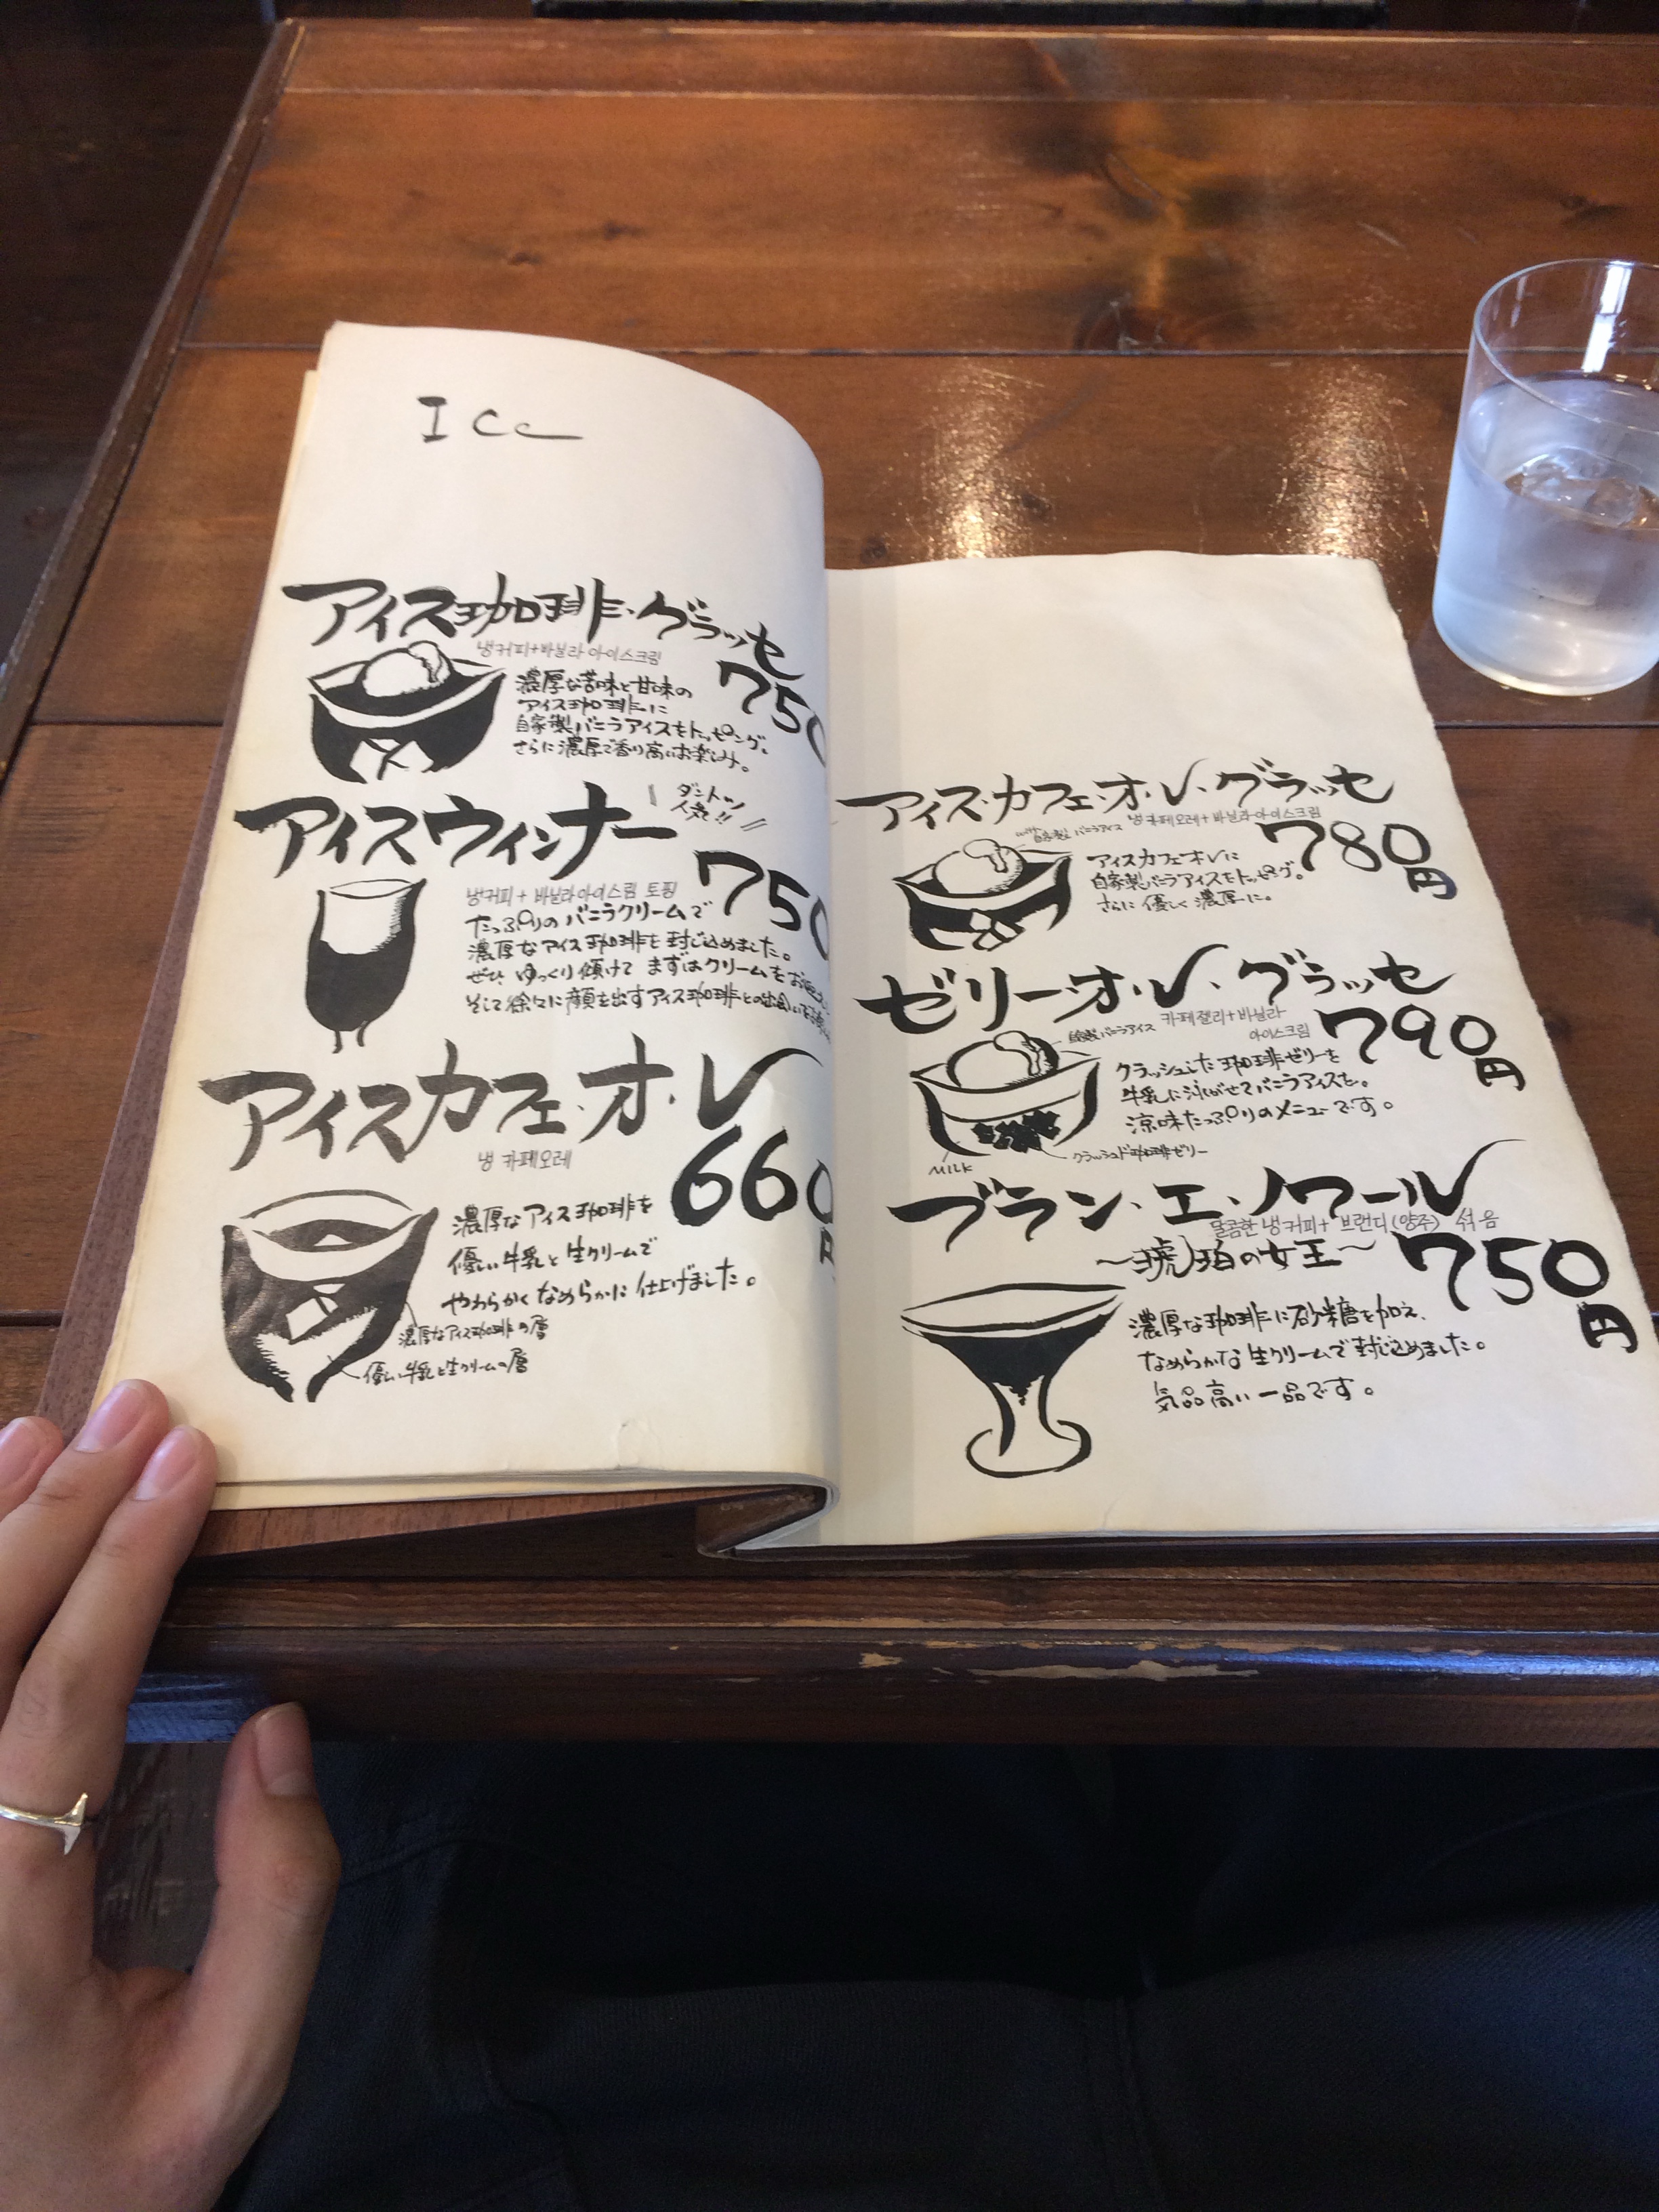 Ice
アイス珈琲・グラッセ
냉커피+바닐라 아이스크림
750
濃厚な苦味と甘味の
アイス珈琲に
自家製バニラアイスをトッピング。
さらに濃厚で香り高いお楽しみ。
アイスウィンナー
ダントツ
人気!!
750
냉커피+바닐라아이스크림 토핑
たっぷりのバニラクリームで
濃厚なアイス珈琲を封じ込めました。
ぜひ、ゆっくり傾けてまずはクリームを
そして徐々に顔を出すアイス珈琲との出会い
アイスカフェ・オ・レ
냉 카페오레
660
円
濃厚なアイス珈琲を
優しい牛乳と生クリームで
やわらかくなめらかに仕上げました。
濃厚なアイス珈琲の層
優しい牛乳と生クリームの層
アイス・カフェ・オ・レ・グラッセ
냉카페오레+바닐라아이스크림
with自家製バニラアイス
780円
アイスカフェオレに
自家製バニラアイスをトッピング。
さらに優しく濃厚に。
ゼリー・オ・レ・グラッセ
自家製バニラアイス
카페젤리+바닐라
아이스크림
790円
クラッシュした珈琲ゼリーを
牛乳に泳がせてバニラアイスを。
涼味たっぷりのメニューです。
MILK
クラッシュド珈琲ゼリー
ブラン・エ・ノワール
달콤한 냉커피+브랜디(양주) 섞음
〜琥珀の女王〜
750円
濃厚な珈琲に砂糖を加え、
なめらかな生クリームで封じ込めました。
気品高い一品です。